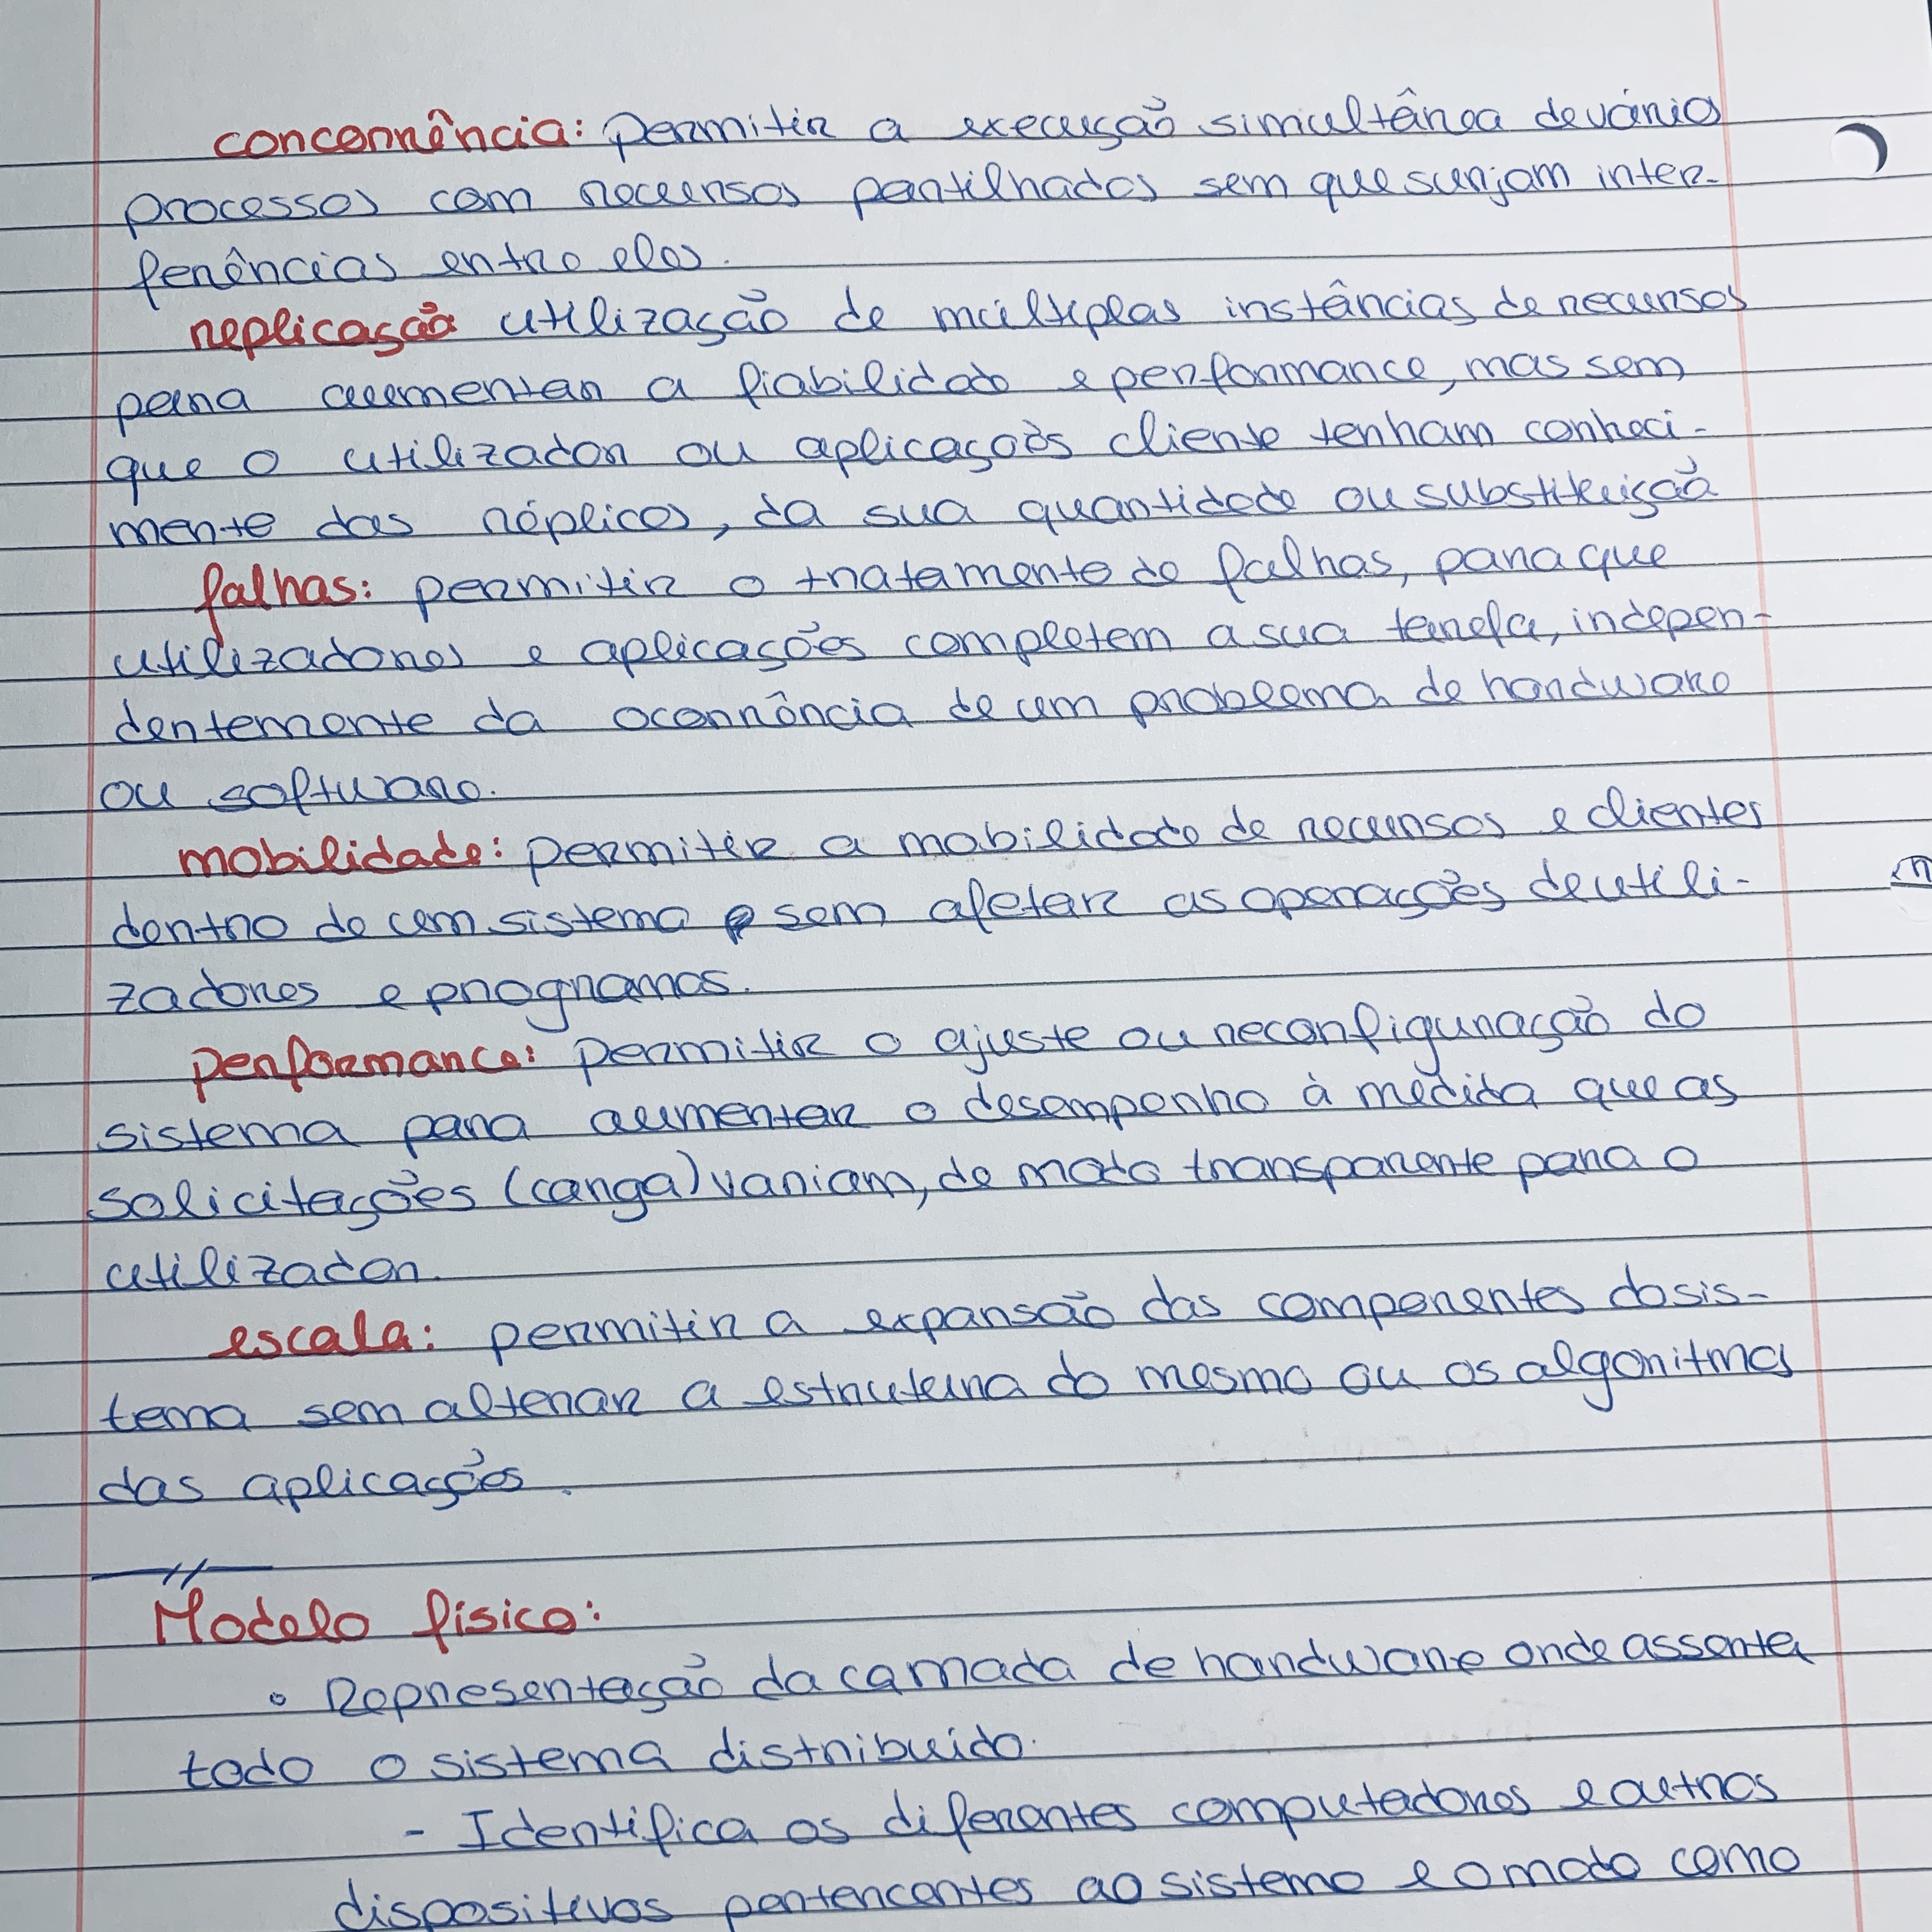 concorrência: permitir a execução simultânea de vários
processos com recursos partilhados sem que surjam inter-
ferências entre eles.
replicação utilização de múltiplas instâncias de recursos
para aumentar a fiabilidade e performance, mas sem
que o utilizador ou aplicações cliente tenham conheci-
mente das réplicas, da sua quantidade ou substituição
falhas: permitir o tratamento de falhas, para que
utilizadores e aplicações completem a sua tarefa, indepen-
dentemente da ocorrência de um problema de hardware
ou software.
mobilidade: permitir a mobilidade de recursos e clientes
dentro de um sistema sem afetar as operações de utili-
zadores e programas.
performance: permitir o ajuste ou reconfiguração do
sistema para aumentar o desempenho à medida que as
solicitações (carga) variam, de modo transparente para o
utilizador.
escala: permitir a expansão das componentes do sis-
tema sem alterar a estrutura do mesmo ou os algoritmos
das aplicações.
Modelo físico:
• Representação da camada de hardware onde assenta
todo o sistema distribuído.
- Identifica os diferentes computadores e outros
dispositivos pertencentes ao sistema e o modo como